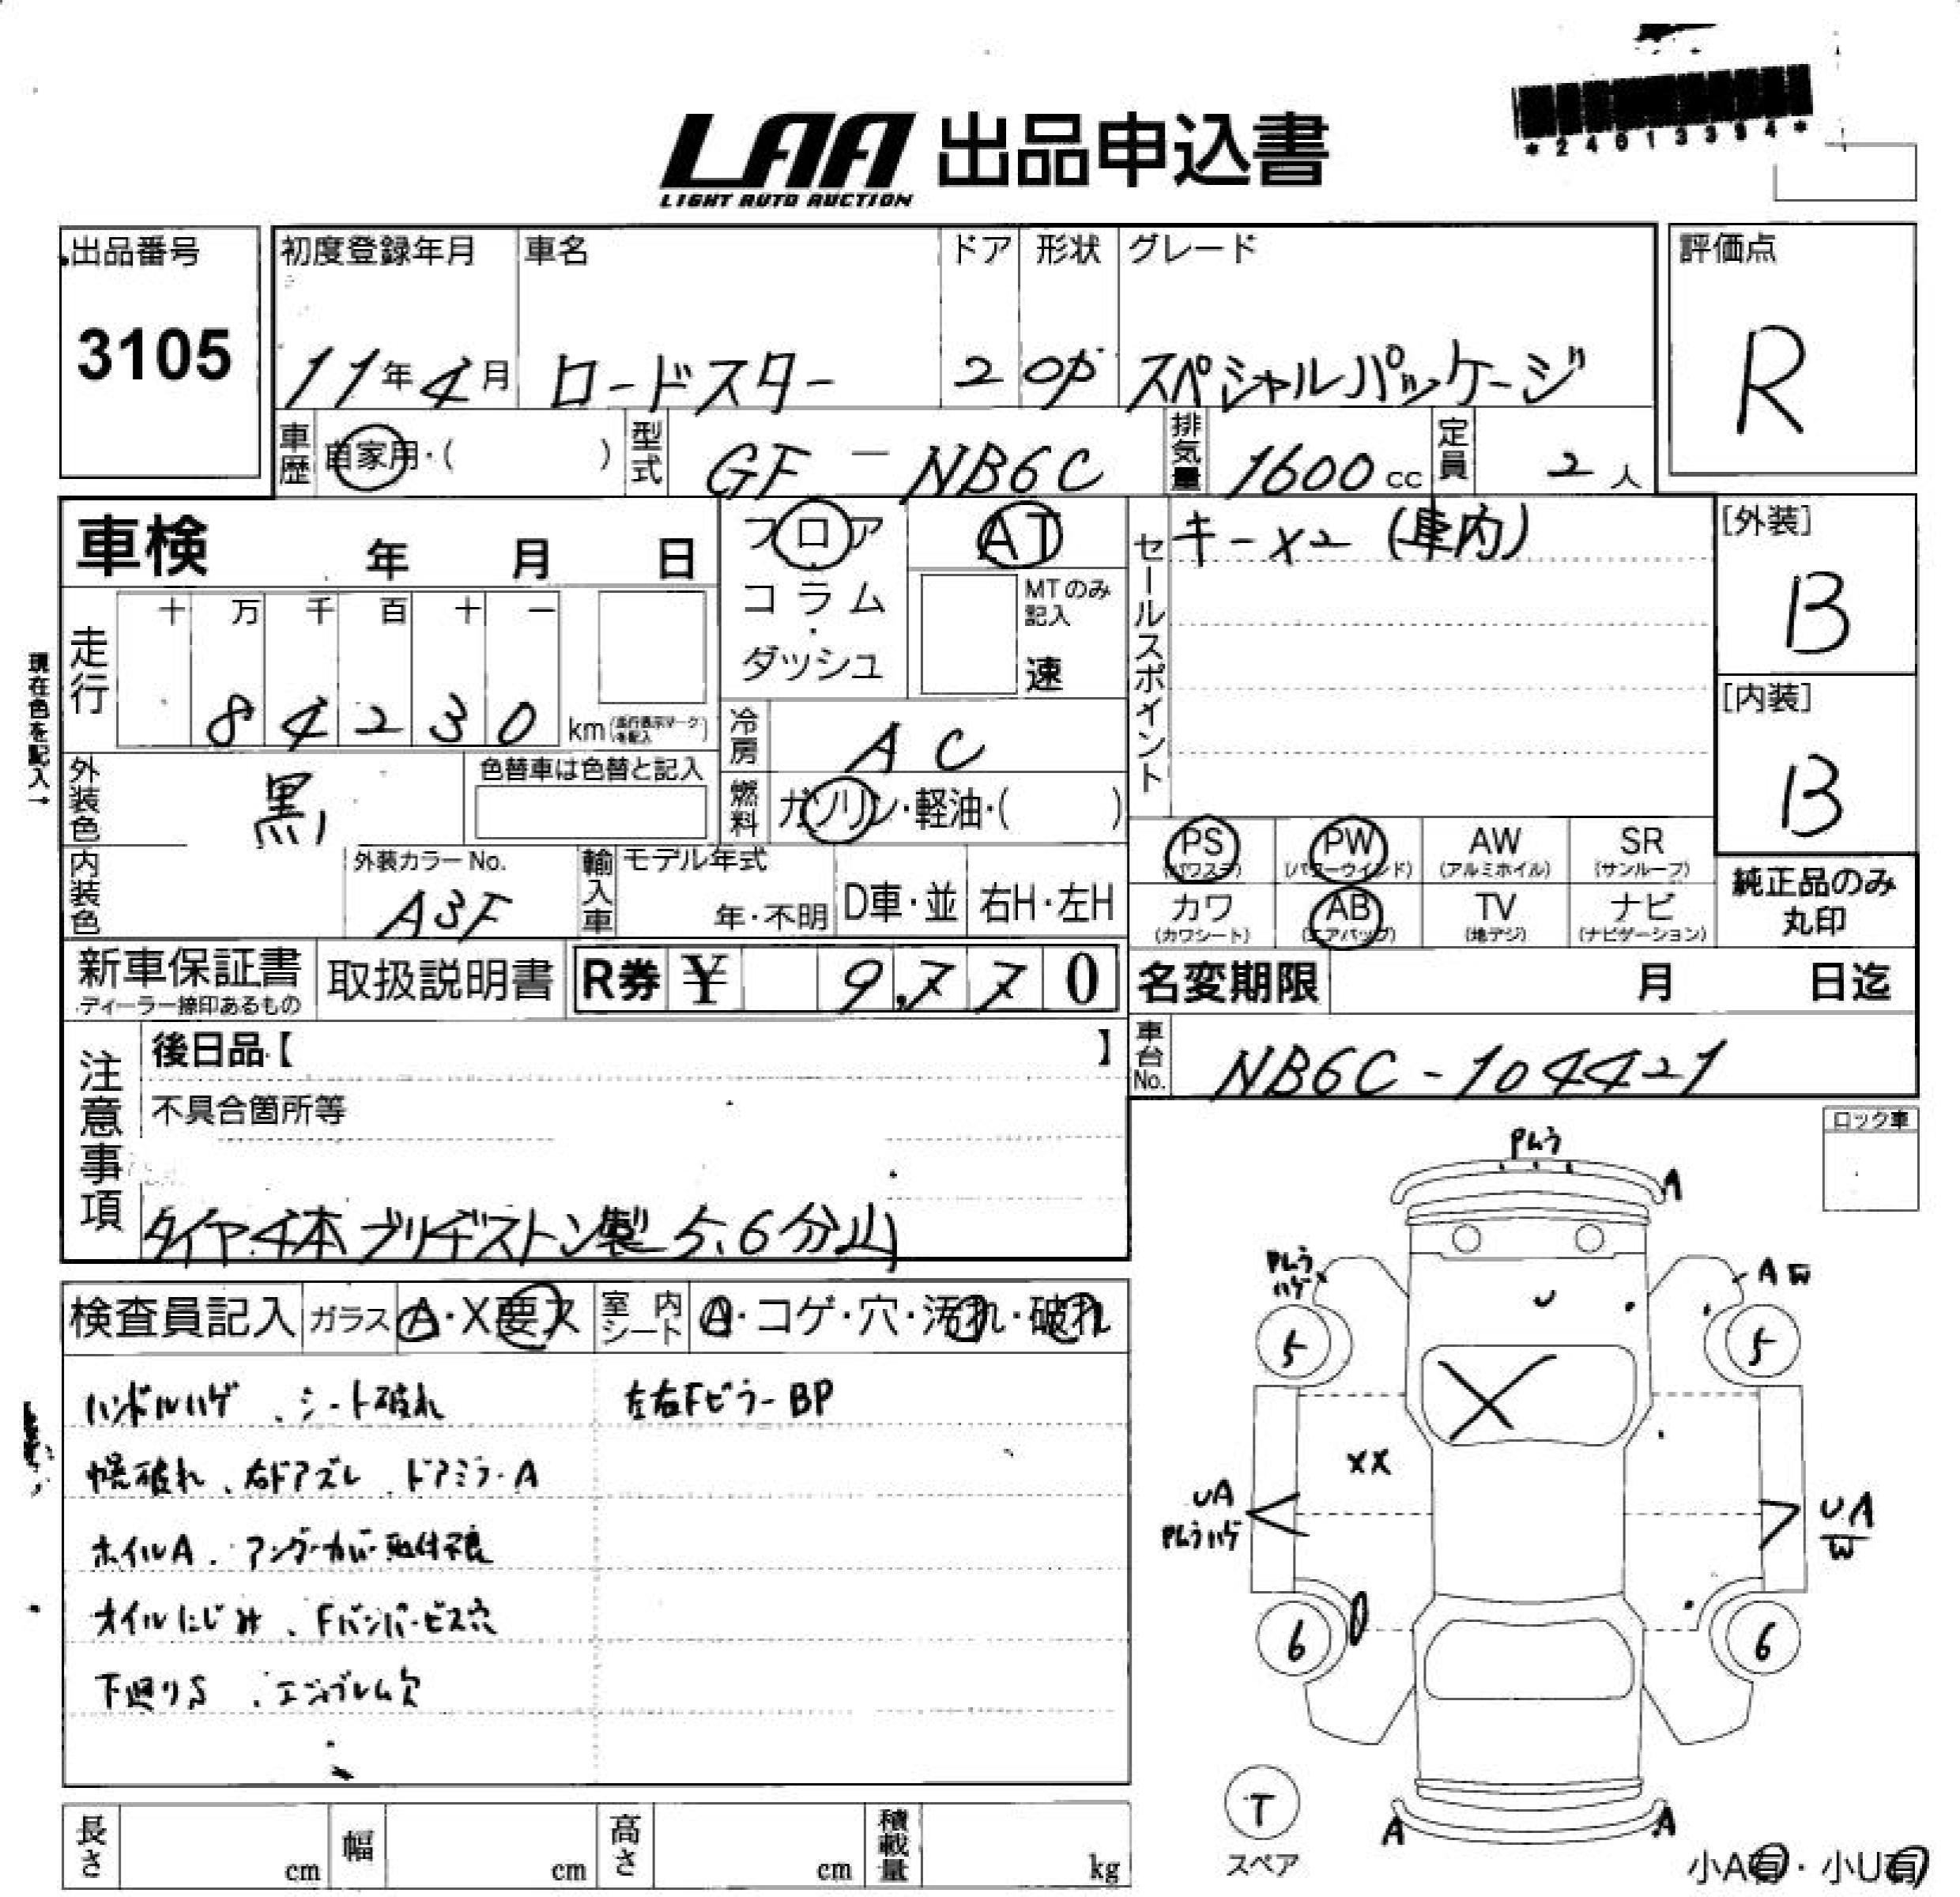 *24013394*
LAA 出品申込書
LIGHT AUTO AUCTION
出品番号
3105
初度登録年月
11年4月
車名
ロードスター
ドア
2
形状
OP
グレード
スペシャルパッケージ
評価点
R
車歴
自家用・( )
型式
GF-NB6C
排気量
1600cc
定員
2人
車検 年 月 日
フロア
・
コラム
・
ダッシュ
AT
MTのみ
記入
速
セールスポイント
キー×2(車内)
[外装]
B
[内装]
B
現在色を記入→
走行
十 万 千 百 十 一
84230
km(走行表示マークを記入)
冷房
AC
燃料
ガソリン・軽油・( )
外装色
黒
色替車は色替と記入
内装色
外装カラーNo.
A3F
輸入車
モデル年式
年・不明
D車・並
右H・左H
PS
(パワステ)
PW
(パワーウインド)
AW
(アルミホイル)
SR
(サンルーフ)
カワ
(カワシート)
AB
(エアバッグ)
TV
(地デジ)
ナビ
(ナビゲーション)
純正品のみ
丸印
新車保証書
ディーラー捺印あるもの
取扱説明書
R券 ¥ 9,770
名変期限 月 日迄
車台No.
NB6C-104421
注意事項
後日品【 】
不具合箇所等
タイヤ4本ブリヂストン製5.6分山
ロック車
検査員記入
ガラス
A・X要ス
室内シート
A・コゲ・穴・汚れ・破れ
ハンドルハゲ、シート破れ
左右Fピラー BP
幌破れ、右ドアズレ、ドアミラーA
ホイルA、アンダーカバー取付不良
オイルにじみ、Fバンパービス穴
下廻りS、エンブレム欠
Pムラ
A
Pムラ
ハゲ
A W
5
5
U
X
XX
UA
Pムラハゲ
UA
W
6
6
T
スペア
A
A
小A有・小U有
長さ cm
幅 cm
高さ cm
積載量 kg